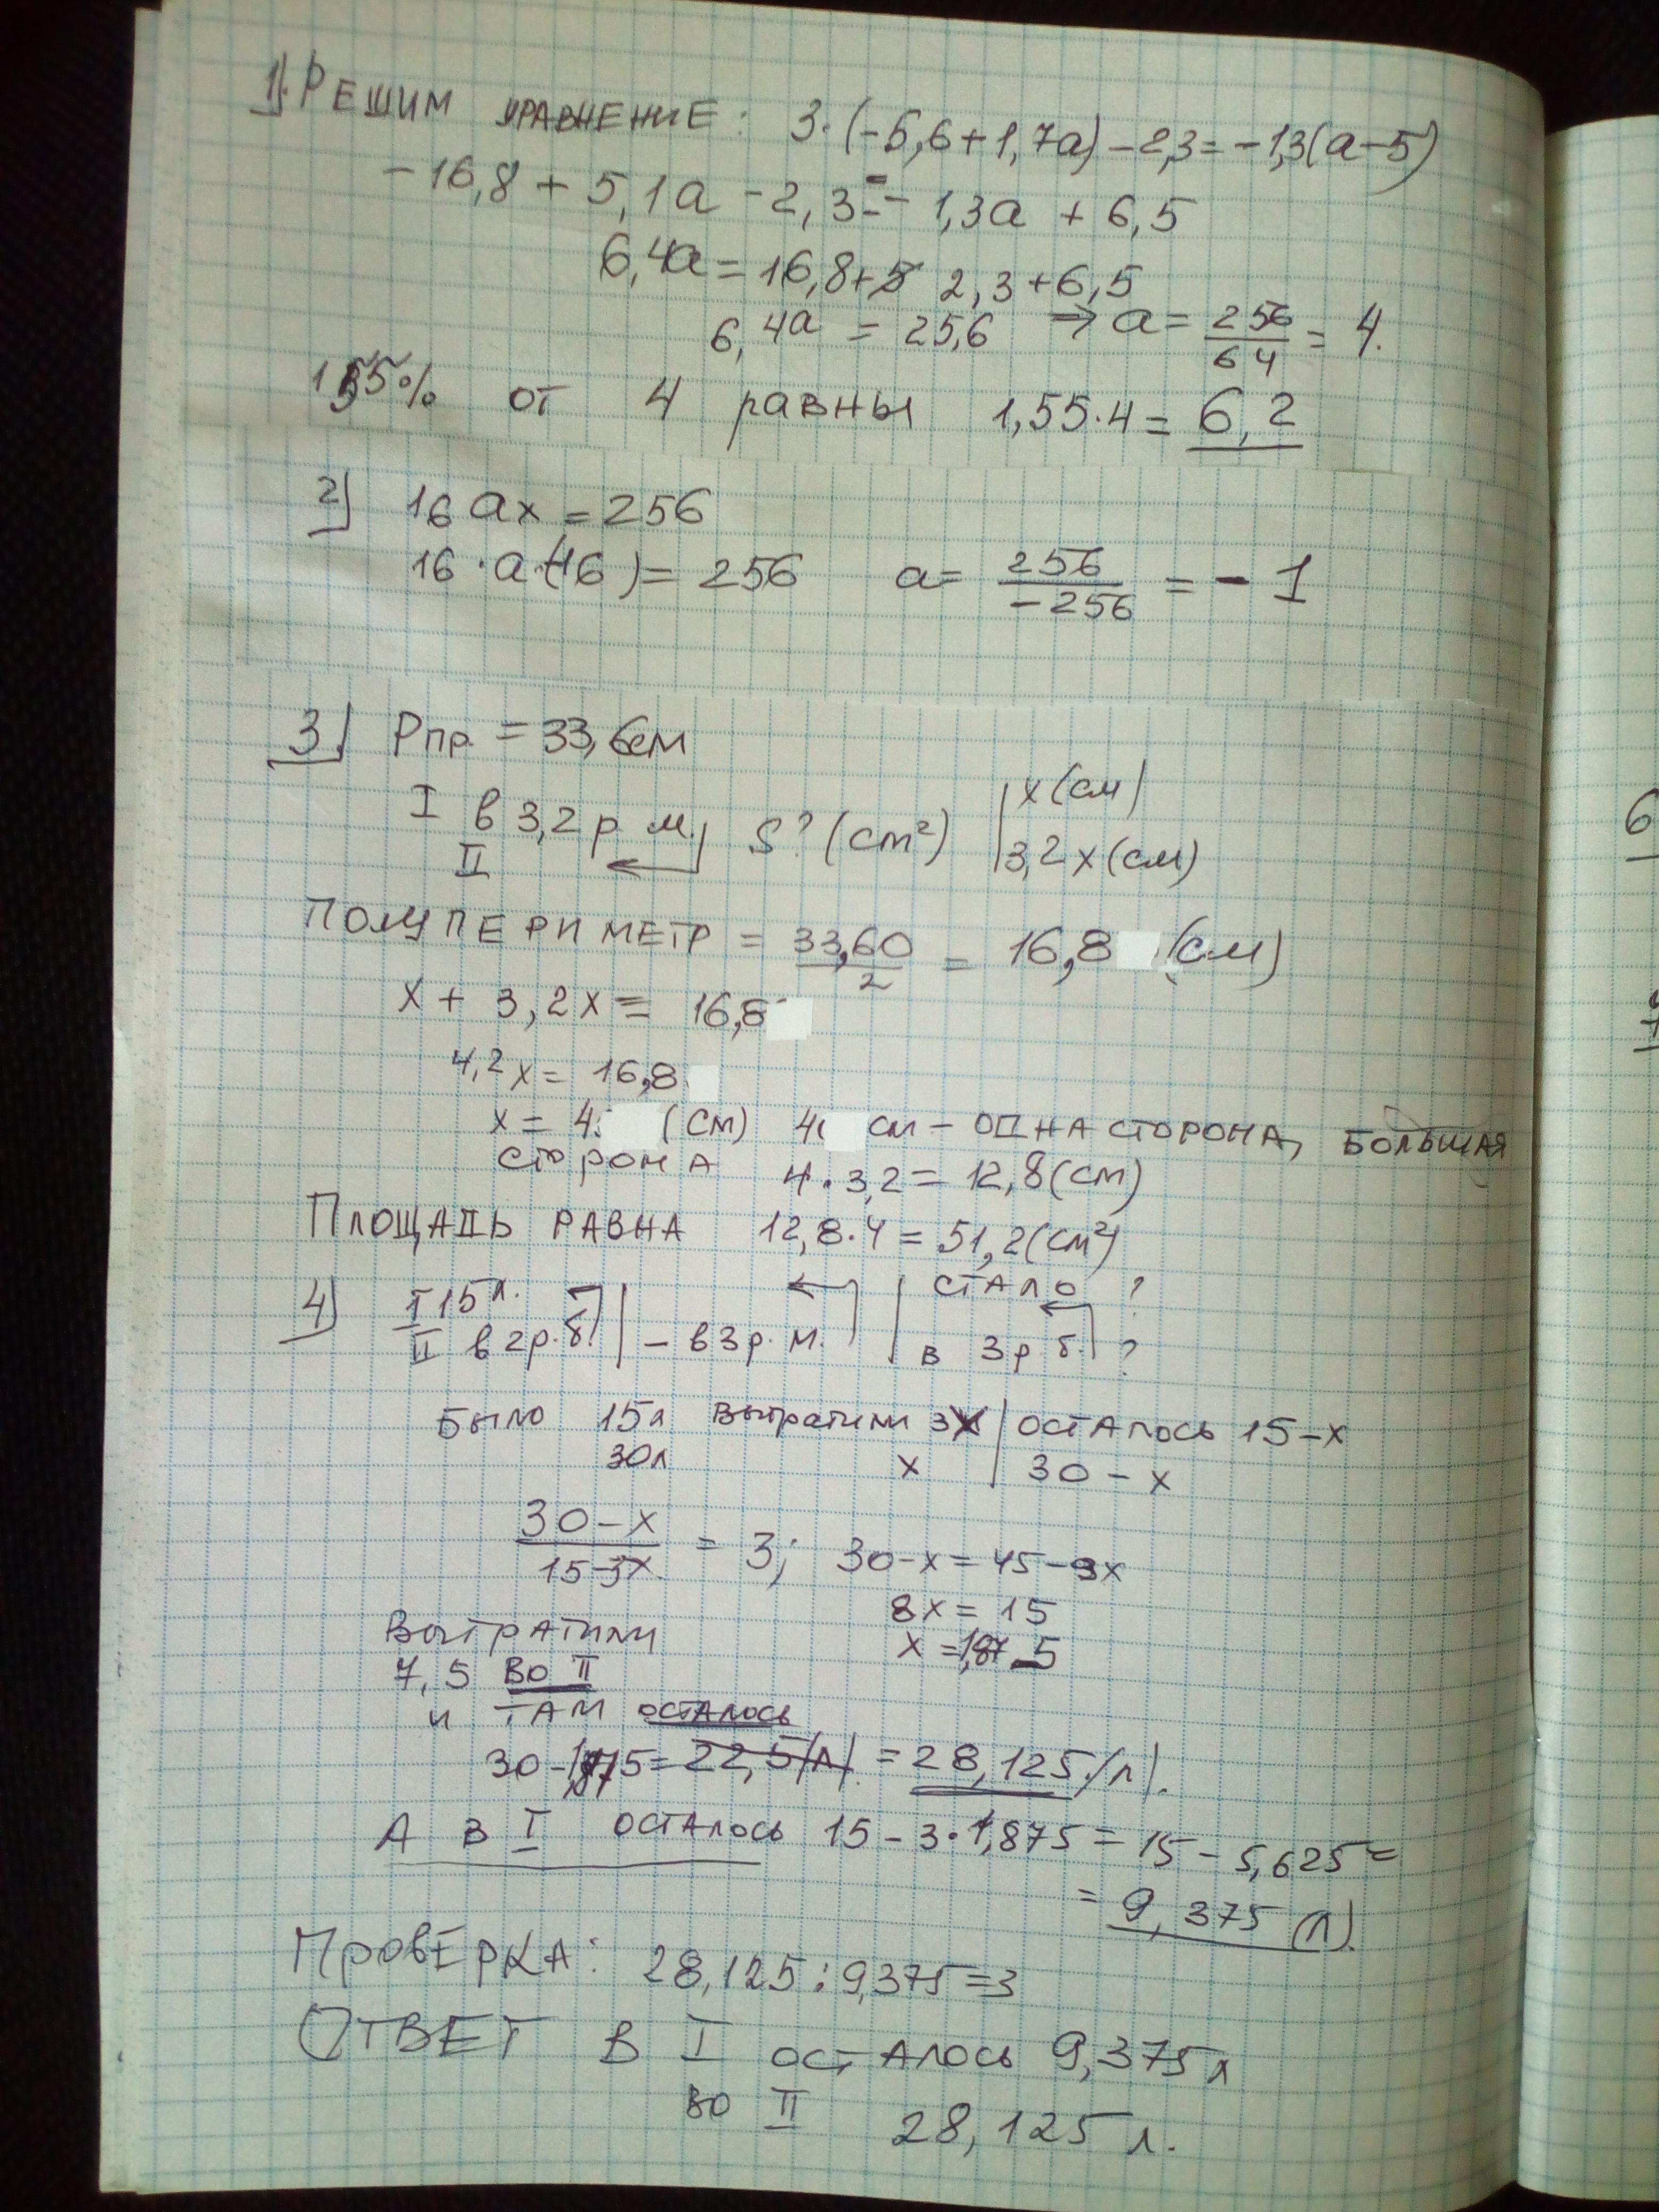 1) РЕШИМ УРАВНЕНИЕ: 3·(-5,6+1,7a)-2,3=-1,3(a-5)
-16,8+5,1a-2,3=-1,3a+6,5
6,4a=16,8+ 2,3+6,5
6,4a=25,6 ⇒ a=256/64=4.
155% от 4 равны 1,55·4=6,2
2) 16ax=256
16·a·(-16)=256 a=256/-256=-1
3) Pпр.=33,6см
I в 3,2 р. м. S? (см²) x(см)
II 3,2x(см)
ПОЛУПЕРИМЕТР=33,60/2=16,8 (см)
x+3,2x=16,8
4,2x=16,8
x=4 (см) 4 см - ОДНА СТОРОНА, БОЛЬШАЯ
СТОРОНА 4·3,2=12,8(см)
ПЛОЩАДЬ РАВНА 12,8·4=51,2(см²)
4) I 15л. СТАЛО ?
II в 2р.б. - в 3р.м. в 3р.б. ?
Было 15л Вытратили 3x ОСТАЛОСЬ 15-x
30л x 30-x
30-x/15-3x=3; 30-x=45-9x
8x=15
Вытратили x=1,875
7,5 ВО II
и ТАМ ОСТАЛОСЬ
30-1,875=22,5(л).=28,125(л).
А В I ОСТАЛОСЬ 15-3·1,875=15-5,625=
=9,375 (л).
ПРОВЕРКА: 28,125:9,375=3
ОТВЕТ В I ОСТАЛОСЬ 9,375л
во II 28,125л.
6
7